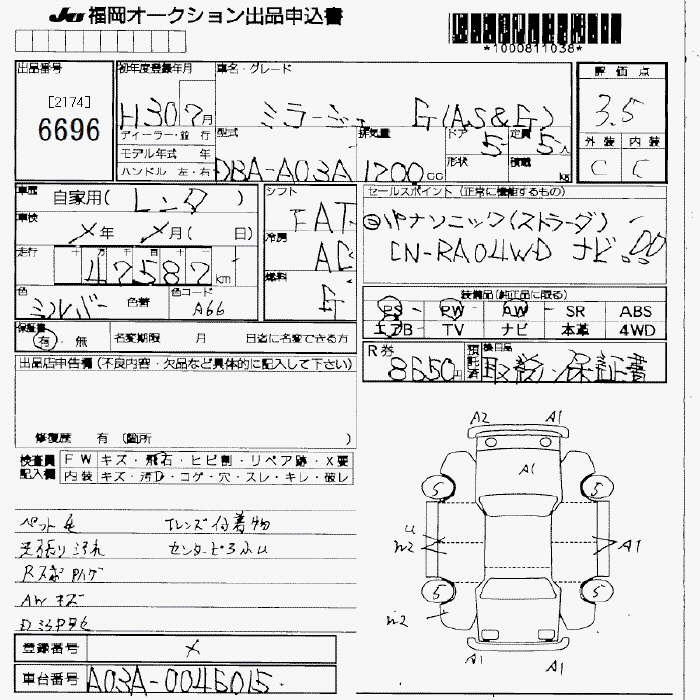 JU 福岡オークション出品申込書
*1000811038*
出品番号
[2174]
6696
初年度登録年月
H30 7月
車名・グレード
ミラージュ G(AS&G)
評価点
3.5
ディーラー・並行
モデル年式 年
ハンドル 左・右
型式
DBA-A03A
排気量
1200cc
ドア
5
形状
定員
5人
積載
kg
外装 内装
C C
車歴
自家用(レンタ)
車検
×年 ×月( 日)
走行
十 万 千 百 十 一
47587km
色
シルバー
色替
色コード
A66
シフト
FAT
冷房
AC
燃料
G
セールスポイント(正常に機能するもの)
パナソニック(ストラーダ)
CN-RA04WD ナビ
装備品(純正品に限る)
PS PW AW SR ABS
エアB TV ナビ 本革 4WD
保証書
有・無
名変期限 月 日迄に名変できる方
R券
8650円
預託済
後日品
取説、保証書
出品店申告欄(不良内容・欠品など具体的に記入して下さい)
修復歴 有(箇所 )
検査員記入欄
FW キズ・飛石・ヒビ割・リペア跡・X要
内装 キズ・汚レ・コゲ・穴・スレ・キレ・破レ
Tレンズ付着物
AWキズ
A2 A1
A1
5 5
U
W2 A1
5 5
W2
A1 A1
登録番号
×
車台番号
A03A-0046015